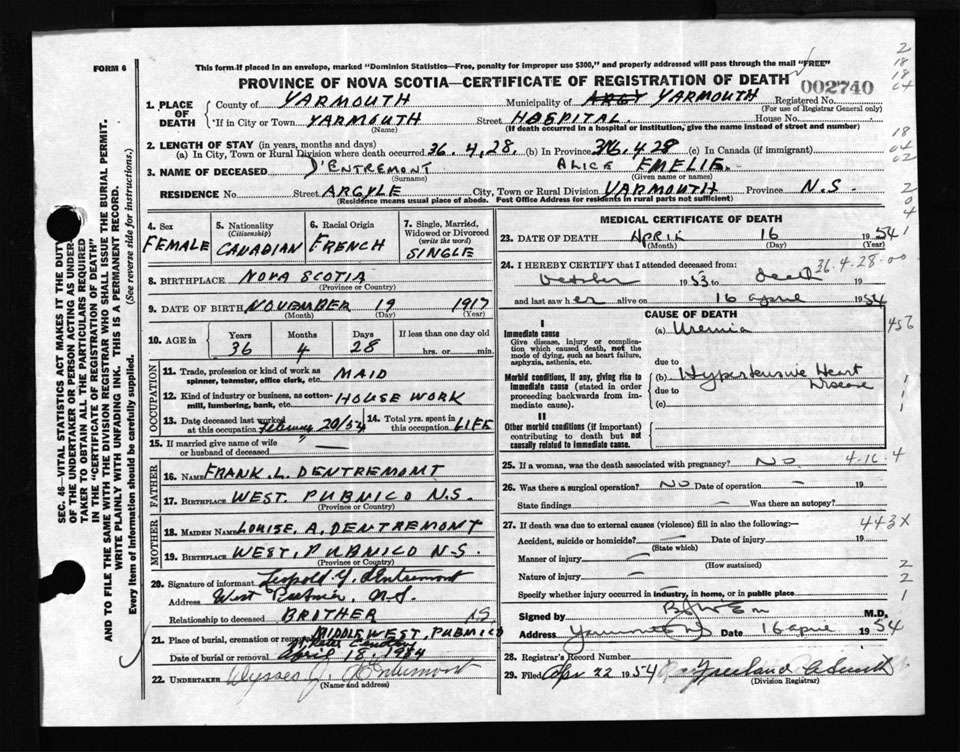 FORM 6
This form if placed in an envelope, marked "Dominion Statistics—Free, penalty for improper use $300," and properly addressed will pass through the mail "FREE"
PROVINCE OF NOVA SCOTIA—CERTIFICATE OF REGISTRATION OF DEATH
002740
2
18
18
04
1. PLACE OF DEATH
County of YARMOUTH Municipality of ARGY YARMOUTH Registered No.
(For use of Registrar General only)
*If in City or Town YARMOUTH Street HOSPITAL. House No.
(Name) (If death occurred in a hospital or institution, give the name instead of street and number)
2. LENGTH OF STAY (in years, months and days)
(a) In City, Town or Rural Division where death occurred 36.4.28. (b) In Province 36.4.28 (c) In Canada (if immigrant)
18
04
02
3. NAME OF DECEASED D'ENTREMONT ALICE EMELIE.
(Surname) (Given name or names)
RESIDENCE No. Street ARGYLE City, Town or Rural Division YARMOUTH Province N.S.
(Residence means usual place of abode. Post Office Address for residents in rural parts not sufficient)
2
0
4
4. Sex
FEMALE
5. Nationality (Citizenship)
CANADIAN
6. Racial Origin
FRENCH
7. Single, Married, Widowed or Divorced (write the word)
SINGLE
8. BIRTHPLACE NOVA SCOTIA
(Province or Country)
9. DATE OF BIRTH NOVEMBER 19 1917
(Month) (Day) (Year)
10. AGE in Years Months Days If less than one day old
36 4 28 hrs. or min.
OCCUPATION
11. Trade, profession or kind of work as spinner, teamster, office clerk, etc. MAID
12. Kind of industry or business, as cotton-mill, lumbering, bank, etc. HOUSE WORK
13. Date deceased last worked at this occupation February 20/54
14. Total yrs. spent in this occupation LIFE
15. If married give name of wife or husband of deceased —
FATHER
16. NAME FRANK. L. DENTREMONT
17. BIRTHPLACE WEST. PUBNICO N.S.
(Province or Country)
MOTHER
18. MAIDEN NAME LOUISE. A. DENTREMONT
19. BIRTHPLACE WEST. PUBNICO N.S.
(Province or Country)
20. Signature of informant Leopold Y. Dentremont
Address West Pubnico, N.S.
Relationship to deceased BROTHER
21. Place of burial, cremation or removal MIDDLE WEST. PUBNICO N.S.
Date of burial or removal April 18, 1954
22. UNDERTAKER Ulysses J. D'Entremont
(Name and address)
MEDICAL CERTIFICATE OF DEATH
23. DATE OF DEATH APRIL 16 1954
(Month) (Day) (Year)
24. I HEREBY CERTIFY that I attended deceased from: 36.4-28-00
October 1953 to death
and last saw her alive on 16 april 1954
CAUSE OF DEATH
I
Immediate cause
Give disease, injury or complication which caused death, not the mode of dying, such as heart failure, asphyxia, asthenia, etc.
(a) Uremia
456
due to
Morbid conditions, if any, giving rise to immediate cause (stated in order proceeding backwards from immediate cause).
(b) Hypertensive Heart Disease
due to
(c)
1
1
1
II
Other morbid conditions (if important) contributing to death but not causally related to immediate cause.
25. If a woman, was the death associated with pregnancy? NO 4-16-4
26. Was there a surgical operation? NO Date of operation — 19
State findings — Was there an autopsy?
27. If death was due to external causes (violence) fill in also the following:—
443X
Accident, suicide or homicide? — Date of injury 19
(State which)
Manner of injury —
(How sustained)
Nature of injury —
2
2
1
Specify whether injury occurred in industry, in home, or in public place
Signed by M.D.
Address Yarmouth NS Date 16 april 1954
28. Registrar's Record Number
29. Filed Apr 22 1954 Freeland A Smith
(Division Registrar)
SEC. 46—VITAL STATISTICS ACT MAKES IT THE DUTY
OF THE UNDERTAKER OR PERSON ACTING AS UNDER-
TAKER TO OBTAIN ALL THE PARTICULARS REQUIRED
IN THE "CERTIFICATE OF REGISTRATION OF DEATH"
AND TO FILE THE SAME WITH THE DIVISION REGISTRAR WHO SHALL ISSUE THE BURIAL PERMIT.
WRITE PLAINLY WITH UNFADING INK. THIS IS A PERMANENT RECORD.
Every item of information should be carefully supplied. (See reverse side for instructions.)